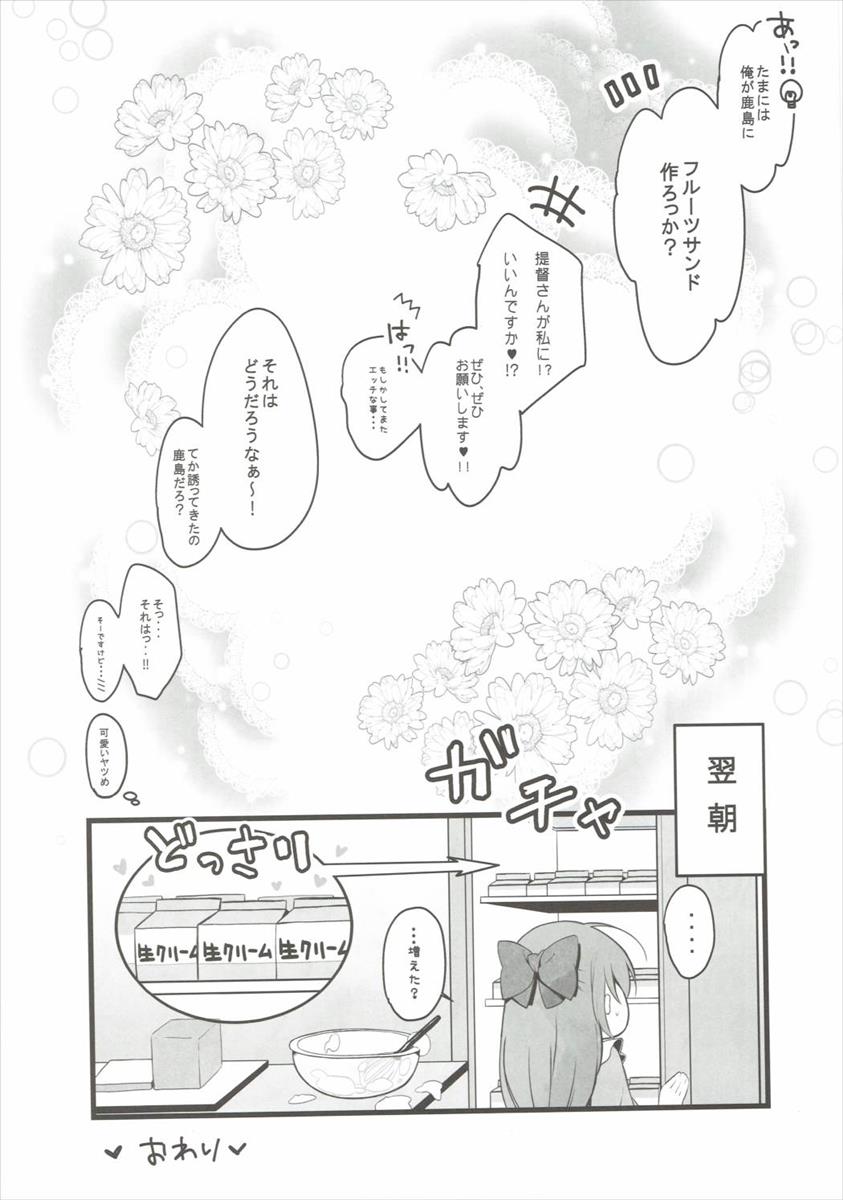 あっ!!
たまには
俺が鹿島に
フルーツサンド
作ろっか?
提督さんが私に!?
いいんですか♥!?
ぜひ、ぜひ
お願いします♥!!
はっ!!
もしかしてまた
エッチな事・・・
それは
どうだろうなぁ～!
てか誘ってきたの
鹿島だろ?
そっ・・・
それはっ・・!!
そーですけど・・・
可愛いヤツめ
翌朝
ガチャ
・・・・
どっさり
生クリーム
生クリーム
生クリーム
・・・増えた?
♥おわり♥